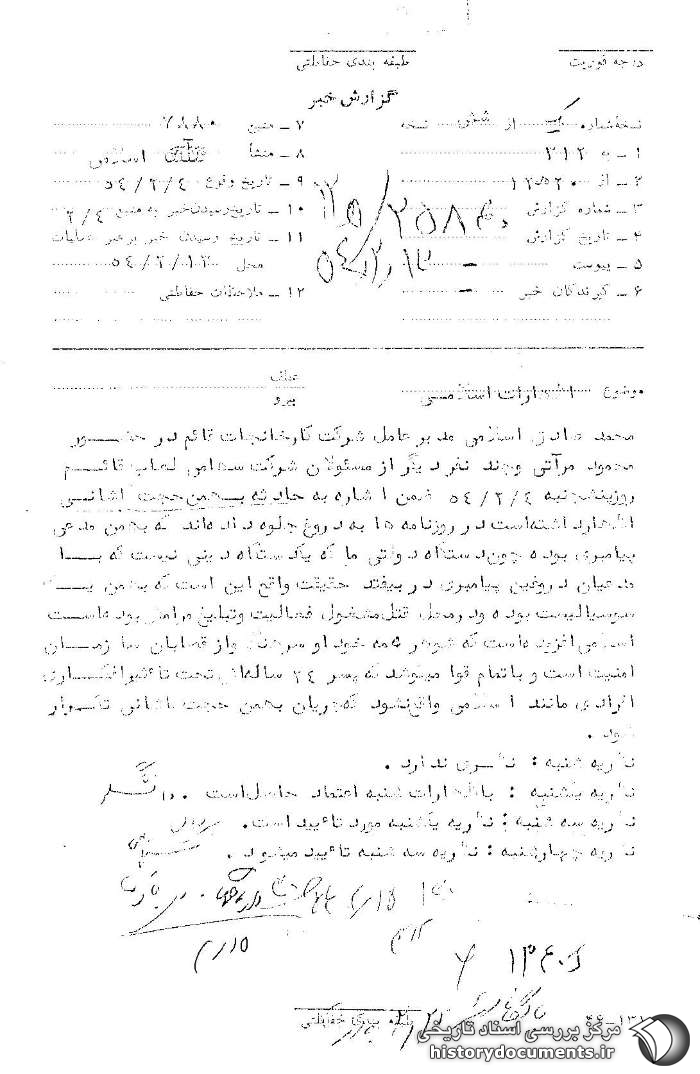 درجه فوریت    طبقه بندی حفاظتی
گزارش خبر
نسخه شماره یک از شش نسخه    ۷ ـ منبع ۷۸۸۰
۱ ـ به ۳۱۲    ۸ ـ منشأ اسلامی
۲ ـ از ۱۲ﻫ۲۰    ۹ ـ تاریخ وقوع ۵۴/۲/۴
۳ ـ شماره گزارش    ۱۰ ـ تاریخ رسیدن خبر به منبع ۲/۴
۴ ـ تاریخ گزارش    ۱۱ ـ تاریخ رسیدن خبر برهبر عملیات
۵ ـ پیوست ـ    محل ۵۴/۲/۱۳
۶ ـ گیرندگان خبر ـ    ۱۲ ـ ملاحظات حفاظتی
موضوع اظهارات اسلامی    عطف
پیرو
محمد صادق اسلامی مدیر عامل شرکت کارخانجات قائم در حضور
محمود مرآتی و چند نفر دیگر از مسئولان شرکت سهامی لعاب قائم
روز پنجشنبه ۵۴/۲/۴ ضمن اشاره به حادثه بهمن حجت کاشانی
اظهار داشته است در روزنامه ها به دروغ جلوه داده اند که بهمن مدعی
پیامبری بوده چون دستگاه دولتی ما که یک دستگاه دینی نیست که با
مدعیان دروغین پیامبری در بیفتد حقیقت واقع این است که بهمن یک
سوسیالیست بوده و در محل قتل مشغول فعالیت و تبلیغ مرامش بوده است
اسلامی افزوده است که شوهر عمه خود او سرهنگ و از قصابان سازمان
امنیت است و با تمام قوا میکوشد که پسر ۲۴ ساله اش تحت تأثیر افکار
افرادی مانند اسلامی واقع نشود که جریان بهمن حجت کاشانی تکرار
شود .
نظریه شنبه : نظری ندارد .
نظریه یکشنبه : باظهارات شنبه اعتماد حاصل است .
نظریه سه شنبه : نظریه یکشنبه مورد تأیید است.
نظریه چهارشنبه : نظریه سه شنبه تأیید میشود .
طبقه بندی حفاظتی
مرکز بررسی اسناد تاریخی
historydocuments.ir